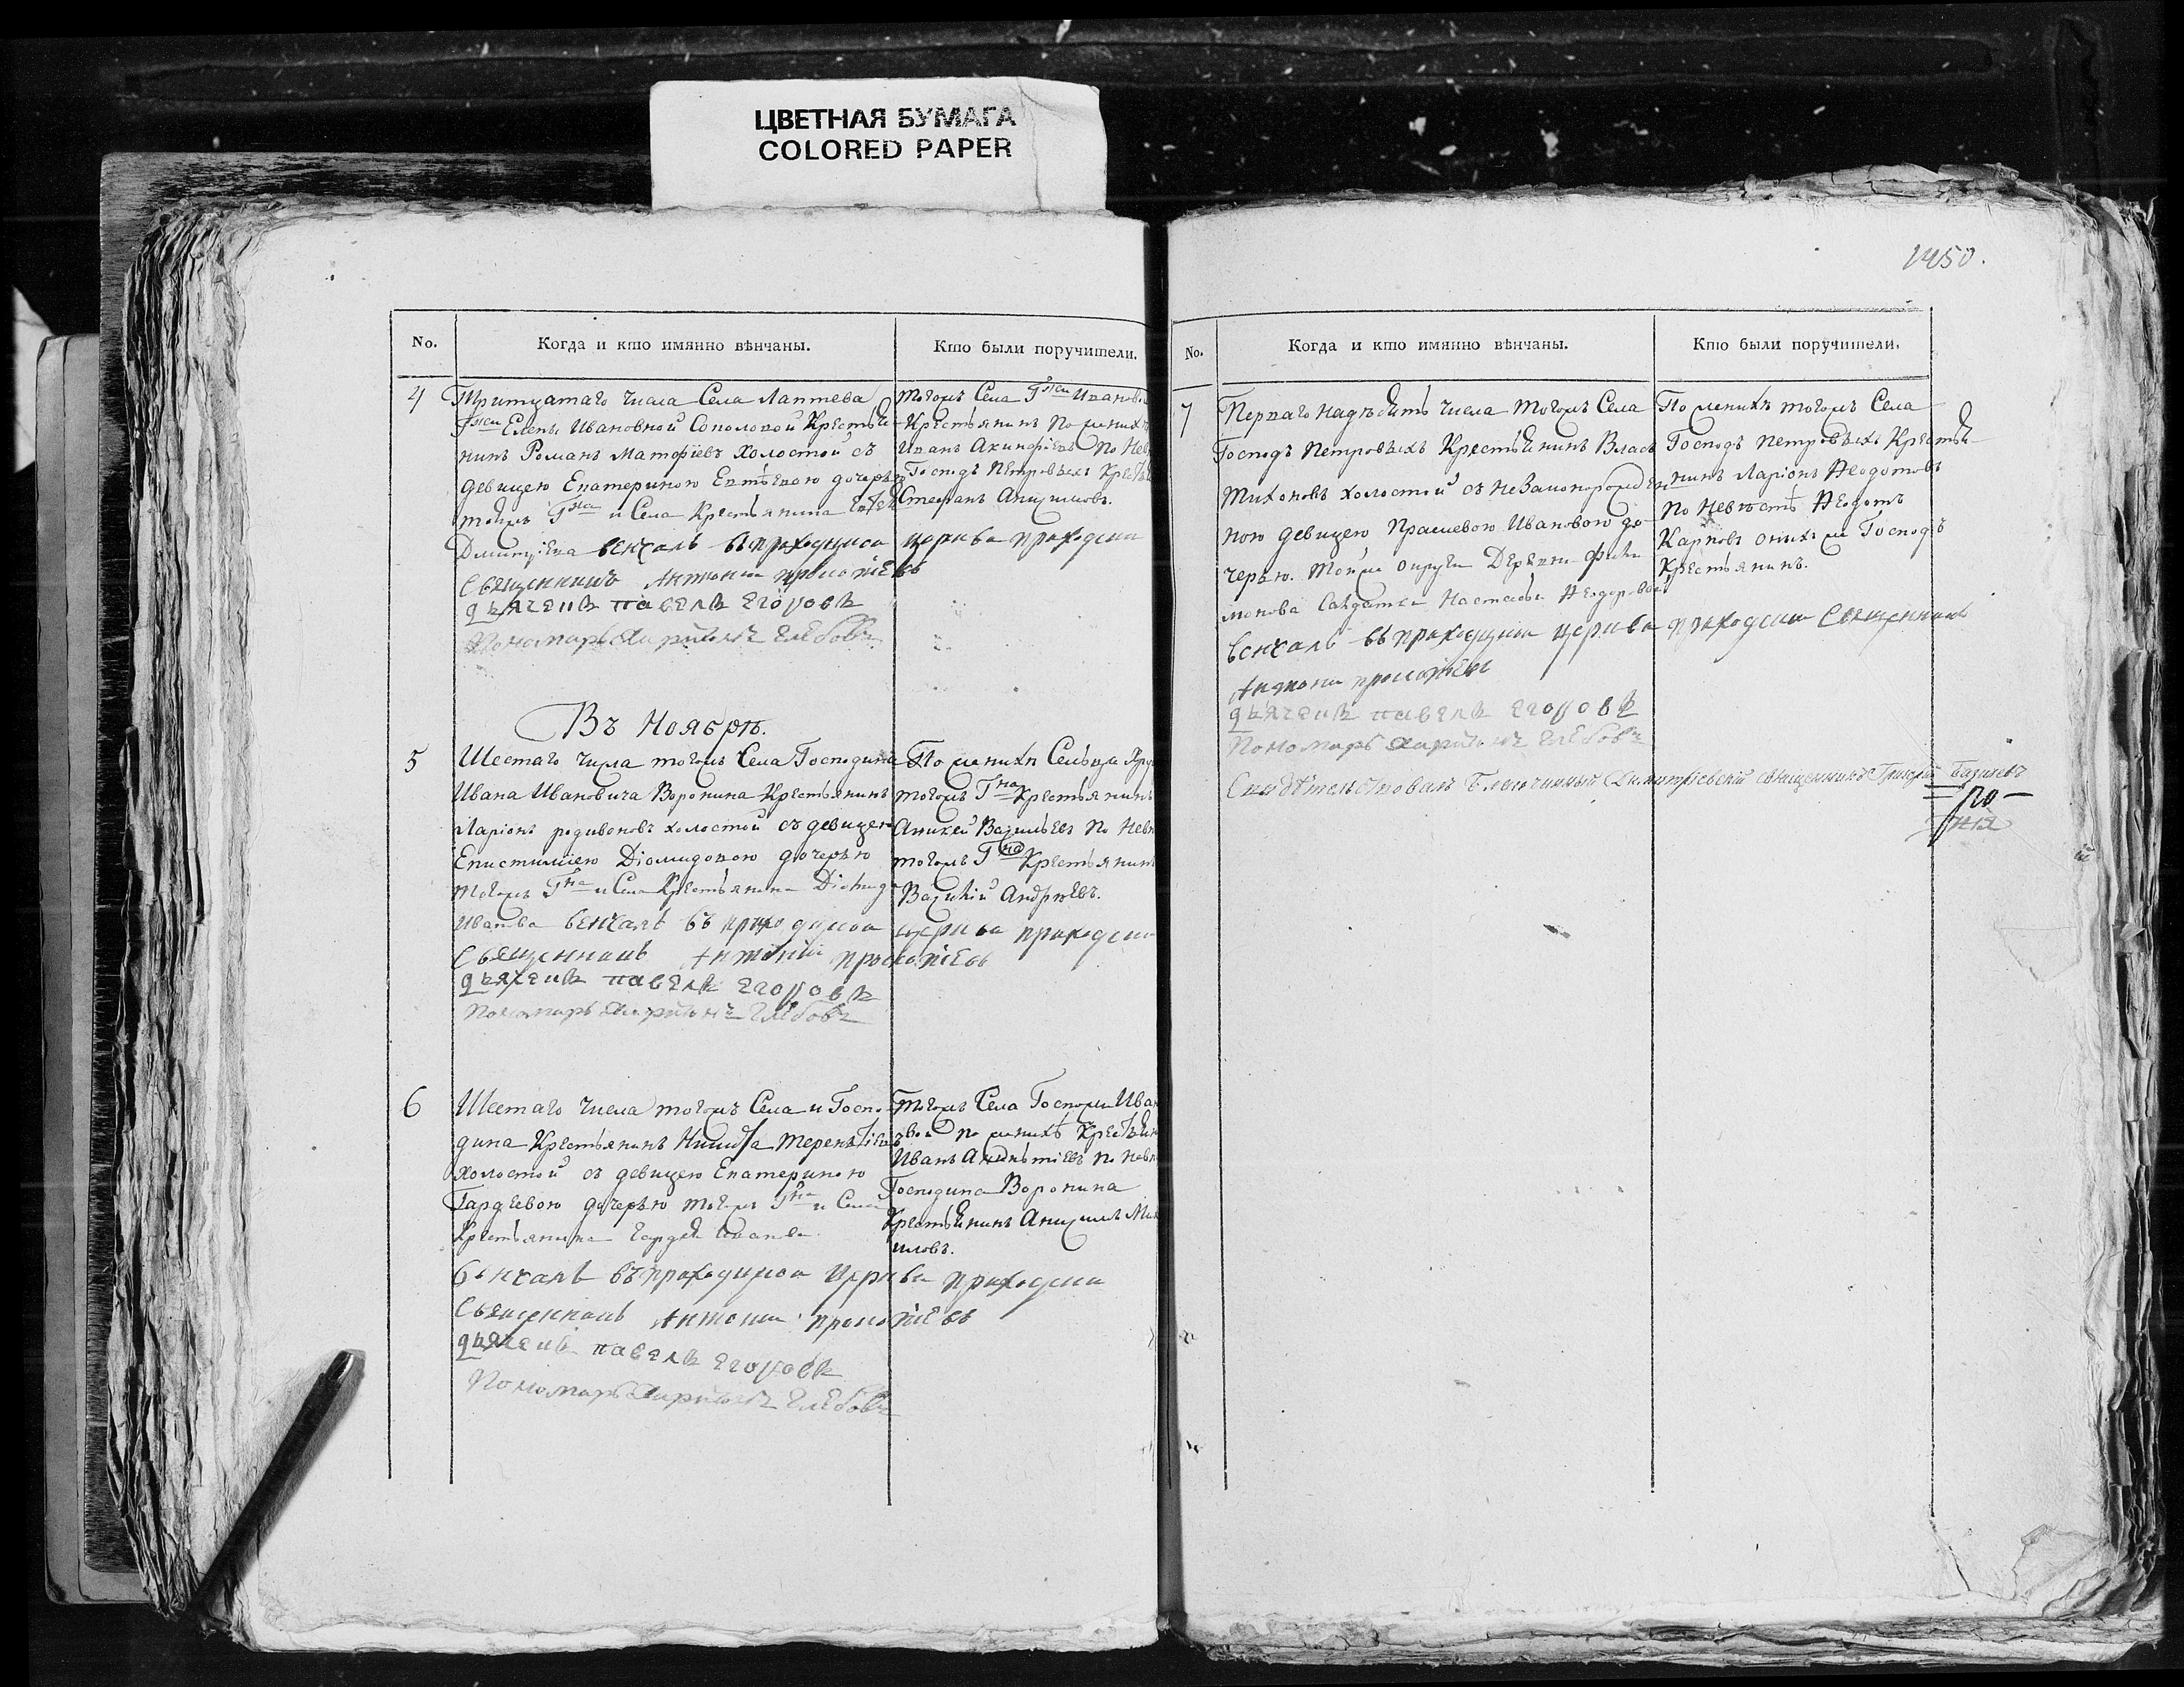 ЦВЕТНАЯ БУМАГА
COLORED PAPER
1450.
No.
Когда и кто имянно вѣнчаны.
Кто были поручители.
4
Тритцатаго числа Села Лаптева
Гжи Елены Ивановной Сополовой Крестья-
нинъ Романъ Матфіевъ холостой съ
девицею Екатериною дочерью
Гжи и Села Крестьянина
венчалъ въ приходцкои церкве приходски
Священникъ Антони
дьячекъ павелъ Егоровъ
Пономарь Глебовъ
тогожъ Села Гжи Иванов
Крестьянинъ По женихѣ
Иванъ Акинфіевъ По Нев
Господъ Петровыхъ Кресть
Стефанъ Анисимовъ.
Въ Ноябрѣ.
5
Шестаго числа тогожъ Села Господина
Ивана Ивановича Воронина Крестьянинъ
Ларіонъ родивоновъ холостой съ девицею
Епистиміею Діомидовою дочерью
тогожъ Гна и Села Крестьянина Діомида
Иванова венчалъ въ приходцкои церкви приходски
Священникъ Антоній
дьячекъ павелъ Егоровъ
Пономарь Глебовъ
По женихѣ Сельца
тогожъ Гна Крестьянинъ
Аникей Васильевъ По Нев
тогожъ Гна Крестьянинъ
Василій Андрѣевъ.
6
Шестаго числа тогожъ Села и Госпо-
дина Крестьянинъ Никита Терентіевъ
холостой съ девицею Екатериною
Гардеевою дочерью тогожъ Гна и Села
Крестьянина Гардея Иванова
венчалъ въ приходцкои церкви приходски
Священникъ Антони
дьячекъ павелъ Егоровъ
Пономарь Глебовъ
тогожъ Села Госпожи Ива
вой по женихѣ Крестьянинъ
Иванъ По Нев
Господина Воронина
Крестьянинъ Анисимъ Ми
No.
Когда и кто имянно вѣнчаны.
Кто были поручители.
7
Перваго надесеть числа тогожъ Села
Господъ Петровыхъ Крестьянинъ Власъ
Тихоновъ холостой съ незаконорожден-
ною девицею Прасковею Ивановою до-
черью. Тойже округи Деревни
Салдатки Настасьи Феодоровой
венчалъ въ приходцкои церкве приходски Священникъ
Антони
дьячекъ павелъ Егоровъ
Пономарь Глебовъ
По женихѣ тогожъ Села
Господъ Петровыхъ Крестья-
нинъ Ларіонъ Феодотовъ
по Невѣстѣ Феодотъ
Карповъ онихже Господъ
Крестьянинъ.
Свидѣтельствовалъ Благочинный Димитріевскій священникъ Григорій